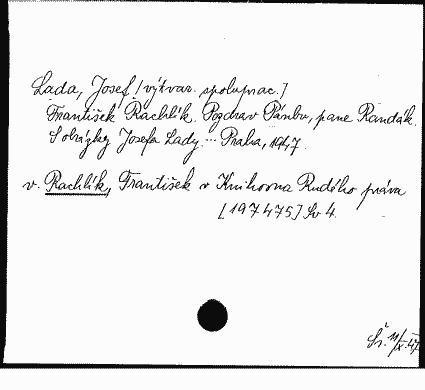 Lada, Josef [výtvar. spoluprac.]
František Rachlík. Pozdrav Pánbu, pane Randák.
S obrázky Josefa Lady. ... Praha, 1947.
v. Rachlík, František v Knihovna Rudého práva
[197475] Sv 4.
Sř. 11/IX. 47